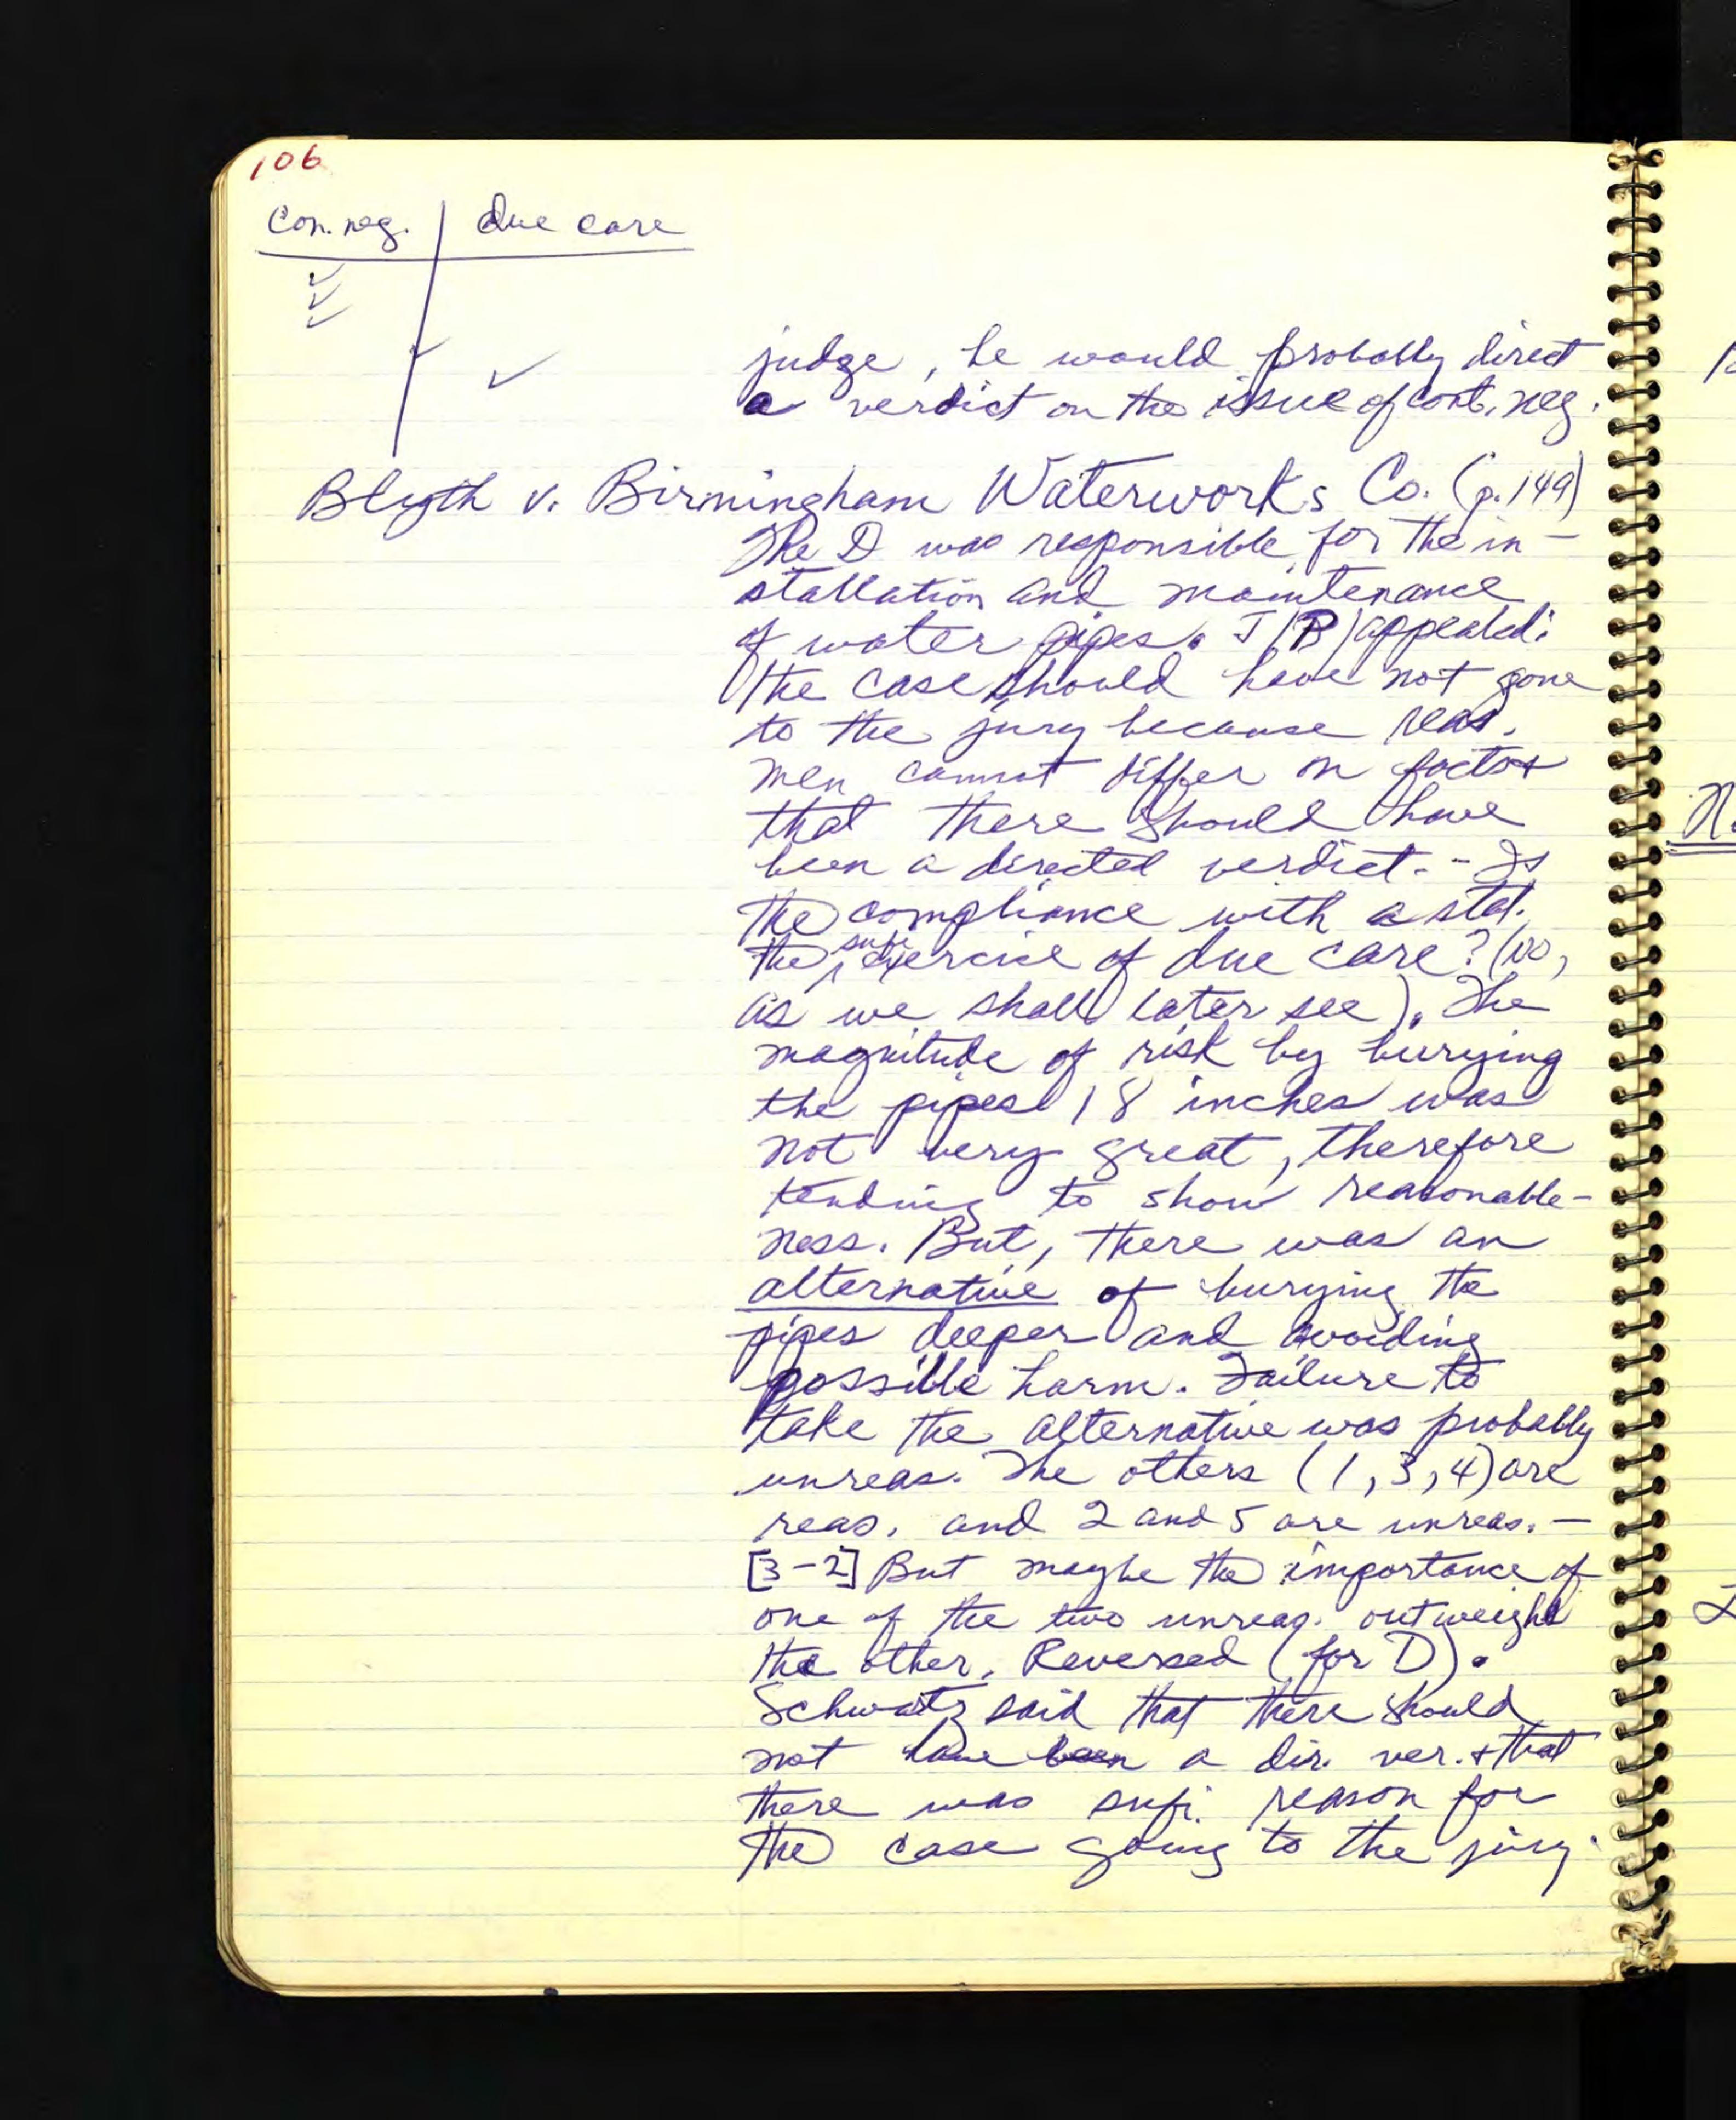 106
Con. neg. | due care
judge, he would probably direct
a verdict on the issue of cont. neg.
Blyth v. Birmingham Waterworks Co. (p. 149)
The D was responsible for the in-
stallation and maintenance
of water pipes. J/P/appealed:
the case should have not gone
to the jury because reas.
men cannot differ on factor
that there should have
been a directed verdict. - Is
the compliance with a stat.
the sufi. exercise of due care? (No,
as we shall later see). The
magnitude of risk by burying
the pipes 18 inches was
not very great, therefore
tending to show reasonable-
ness. But, there was an
alternative of burying the
pipes deeper and avoiding
possible harm. Failure to
take the alternative was probably
unreas. The others (1, 3, 4) are
reas. and 2 and 5 are unreas. -
[3-2] But maybe the importance of
one of the two unreas. outweighs
the other. Reversed (for D).
Schwatz said that there should
not have been a dir. ver. + that
there was sufi. reason for
the case going to the jury.